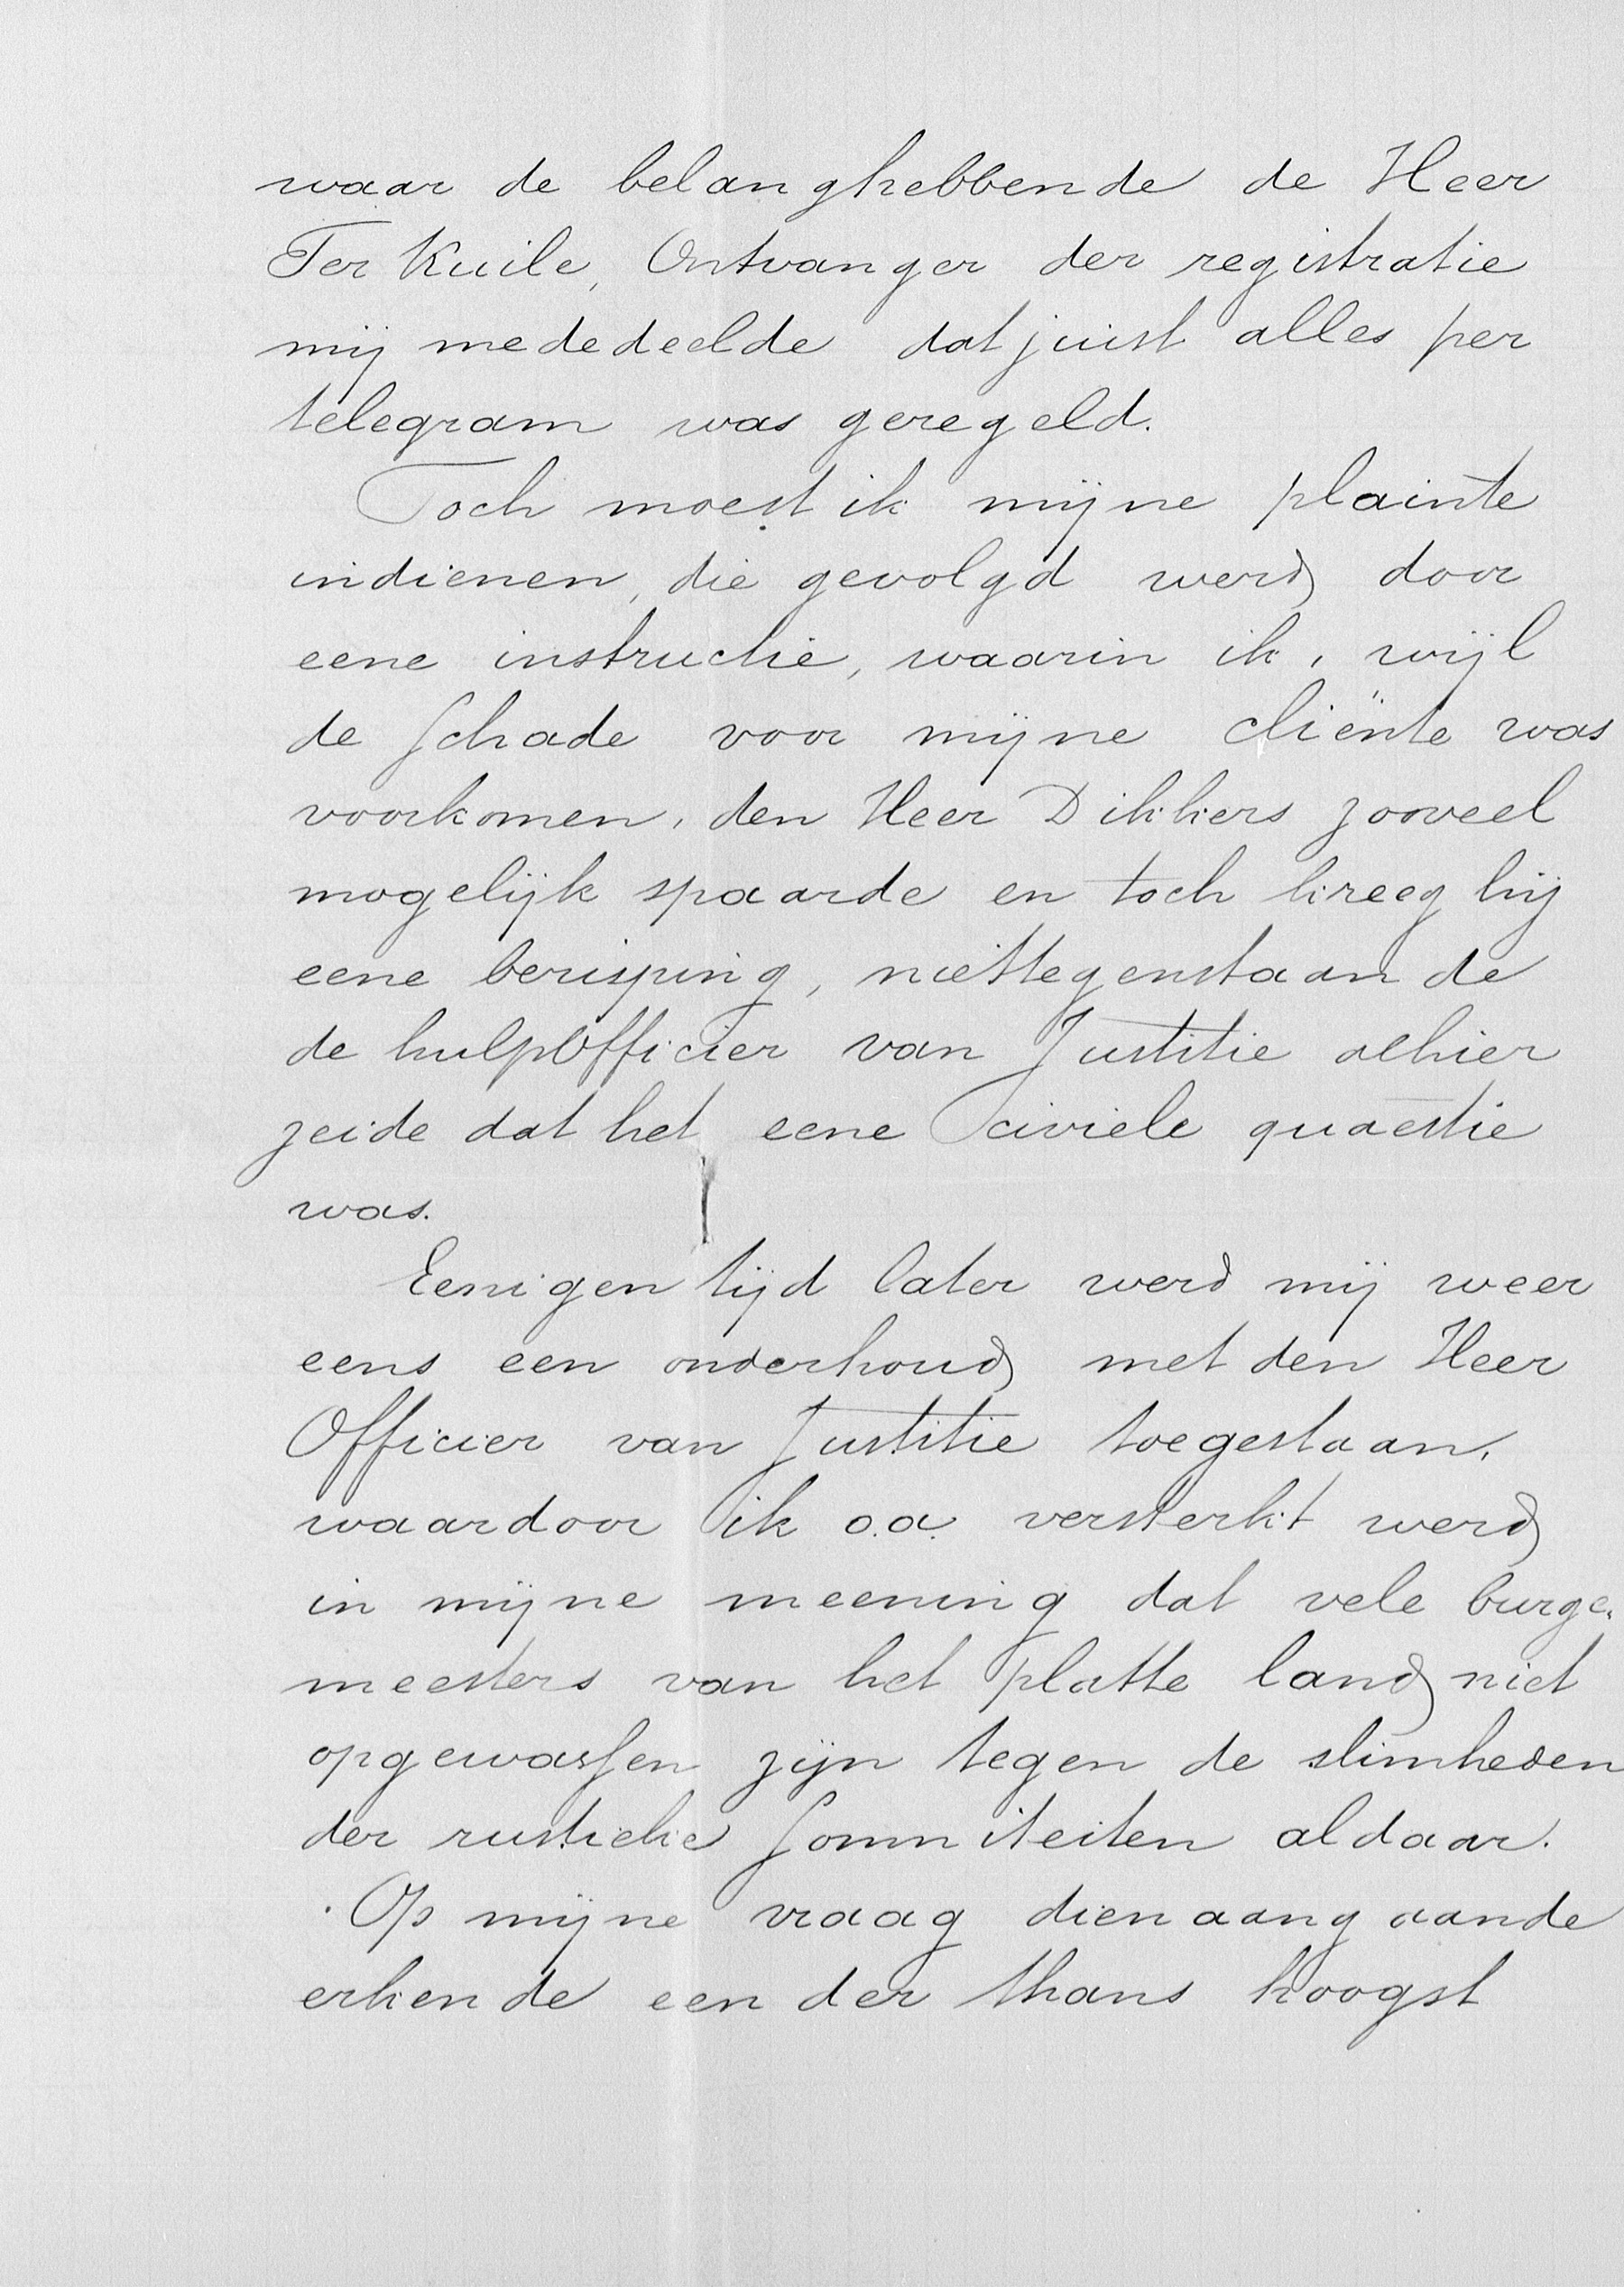 waar de belanghebbende de Heer
Ter Kuile, Ontvanger der registratie
mij mededeelde dat juist alles per
telegram was geregeld.
Toch moest ik mijne plainte
indienen, die gevolgd werd door
eene instructie, waarin ik, wijl
de schade voor mijne cliënte was
voorkomen, den Heer Dikkers zooveel
mogelijk spaarde en toch kreeg hij
eene berisping, niettegenstaande
de hulpofficier van Justitie alhier
zeide dat het eene civiele quaestie
was.
Eenigen tijd later werd mij weer
eens een onderhoud met den Heer
Officier van Justitie toegestaan,
waardoor ik o.a. versterkt werd
in mijne meening dat vele burge-
meesters van het platte land niet
opgewassen zijn tegen de slimheden
der rustieke somniteiten aldaar.
Op mijne vraag dienaangaande
erkende een der thans hoogst